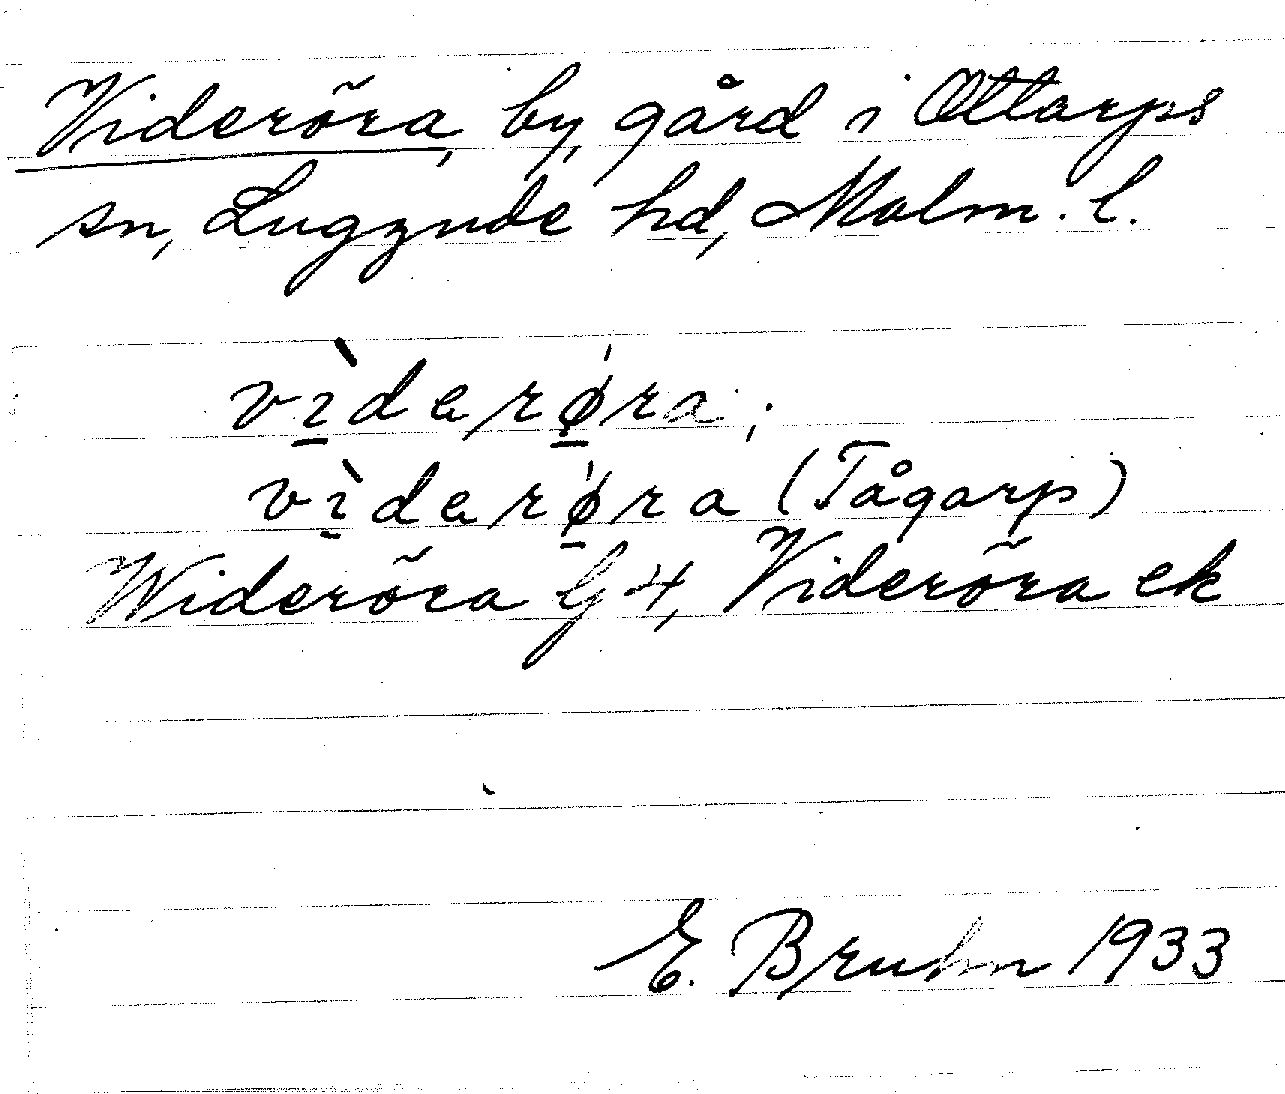 Videröra, by, gård i Ottarps
sn, Luggude hd, Malm. l.
vìdarø̀ra;
vìdarø̀ra (Tågarp)
Wideröra G 4, Videröra ek
E. Bruhn 1933